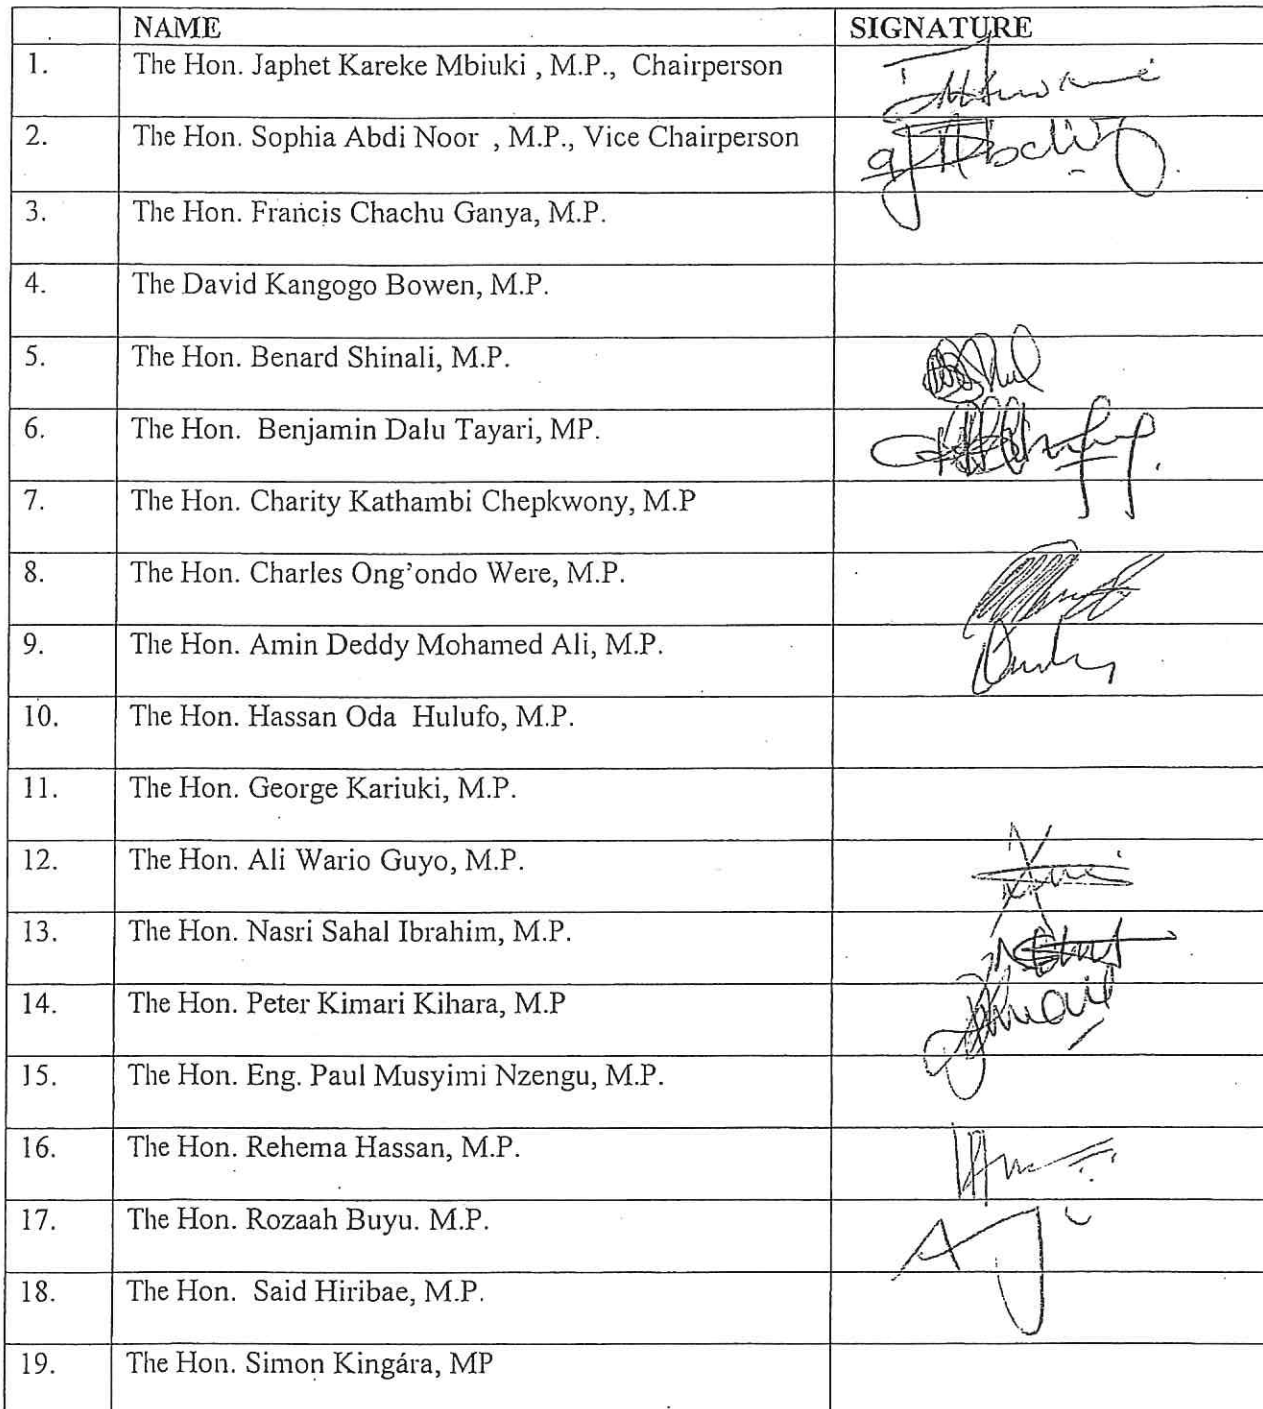 NAME SIGNATURE
1. The Hon. Japhet Kareke Mbiuki , M.P., Chairperson
2. The Hon. Sophia Abdi Noor , M.P., Vice Chairperson
3. The Hon. Francis Chachu Ganya, M.P.
4. The David Kangogo Bowen, M.P.
5. The Hon. Benard Shinali, M.P.
6. The Hon. Benjamin Dalu Tayari, MP.
7. The Hon. Charity Kathambi Chepkwony, M.P
8. The Hon. Charles Ong’ondo Were, M.P.
9. The Hon. Amin Deddy Mohamed Ali, M.P.
10. The Hon. Hassan Oda Hulufo, M.P.
11. The Hon. George Kariuki, M.P.
12. The Hon. Ali Wario Guyo, M.P.
13. The Hon. Nasri Sahal Ibrahim, M.P.
14. The Hon. Peter Kimari Kihara, M.P
15. The Hon. Eng. Paul Musyimi Nzengu, M.P.
16. The Hon. Rehema Hassan, M.P.
17. The Hon. Rozaah Buyu. M.P.
18. The Hon. Said Hiribae, M.P.
19. The Hon. Simon Kingára, MP